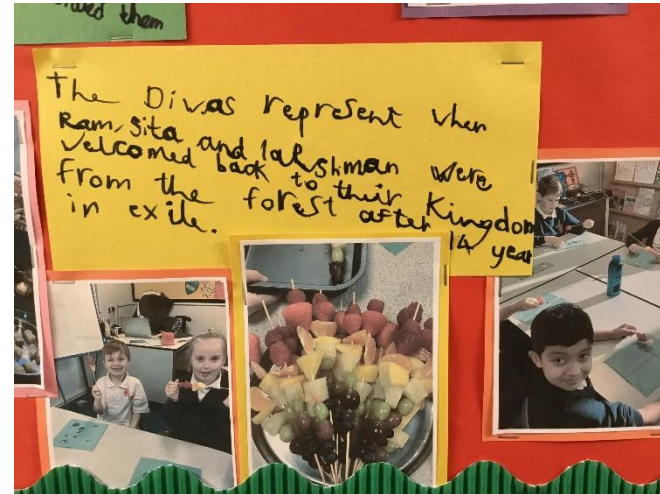 them
The Divas represent when
Ram, Sita and lakshman were
welcomed back to their Kingdom
from the forest after 14 year
in exile.